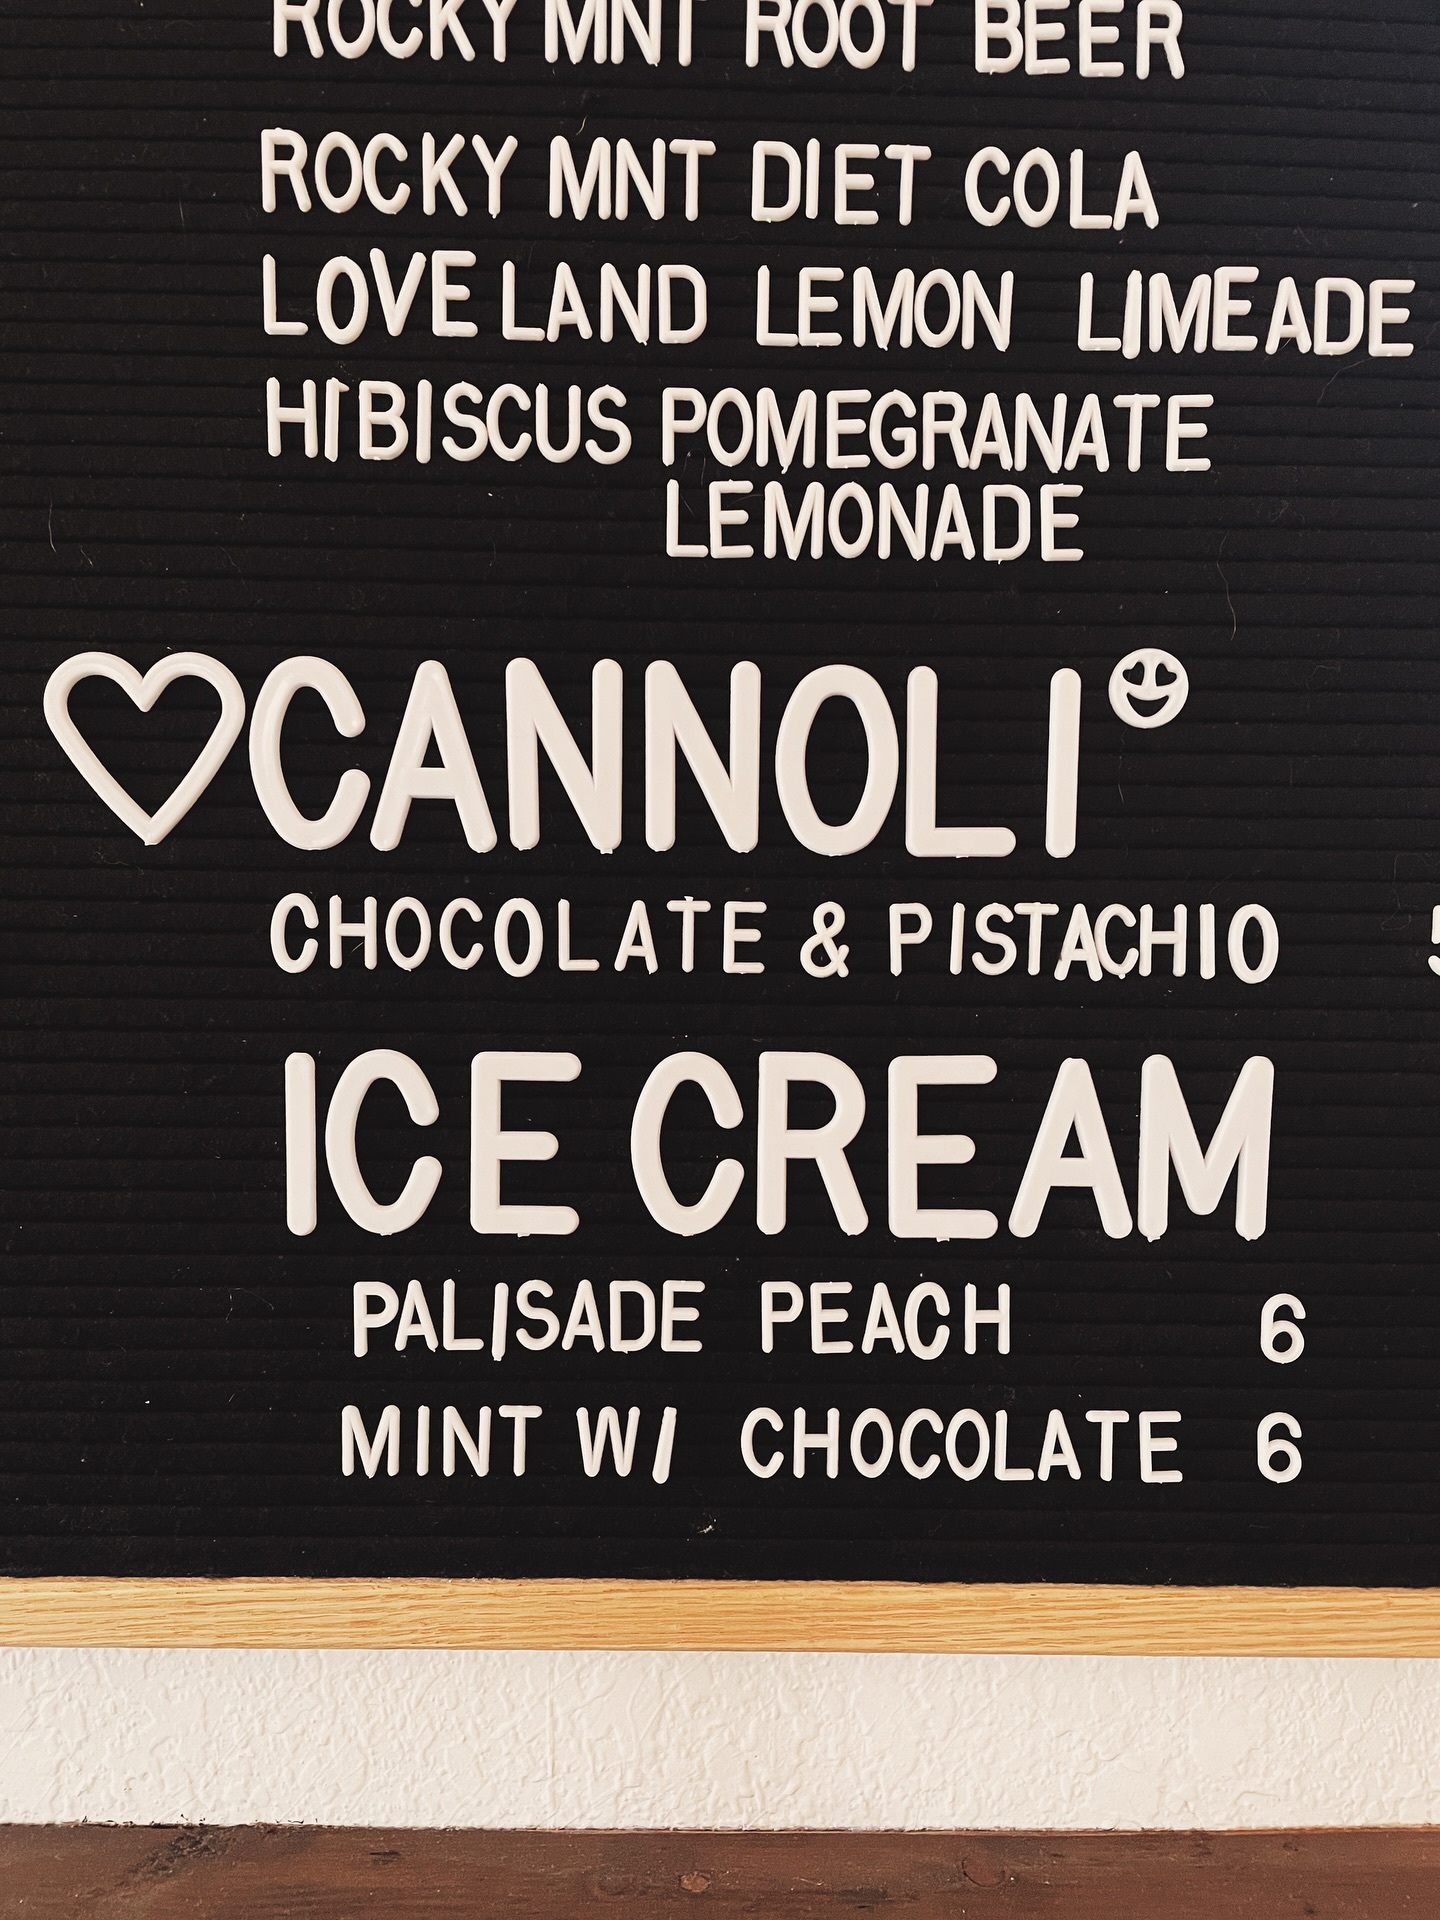 ROCKY MNT ROOT BEER
ROCKY MNT DIET COLA
LOVELAND LEMON LIMEADE
HIBISCUS POMEGRANATE
LEMONADE
CANNOLI
CHOCOLATE & PISTACHIO
ICE CREAM
PALISADE PEACH 6
MINT W/ CHOCOLATE 6